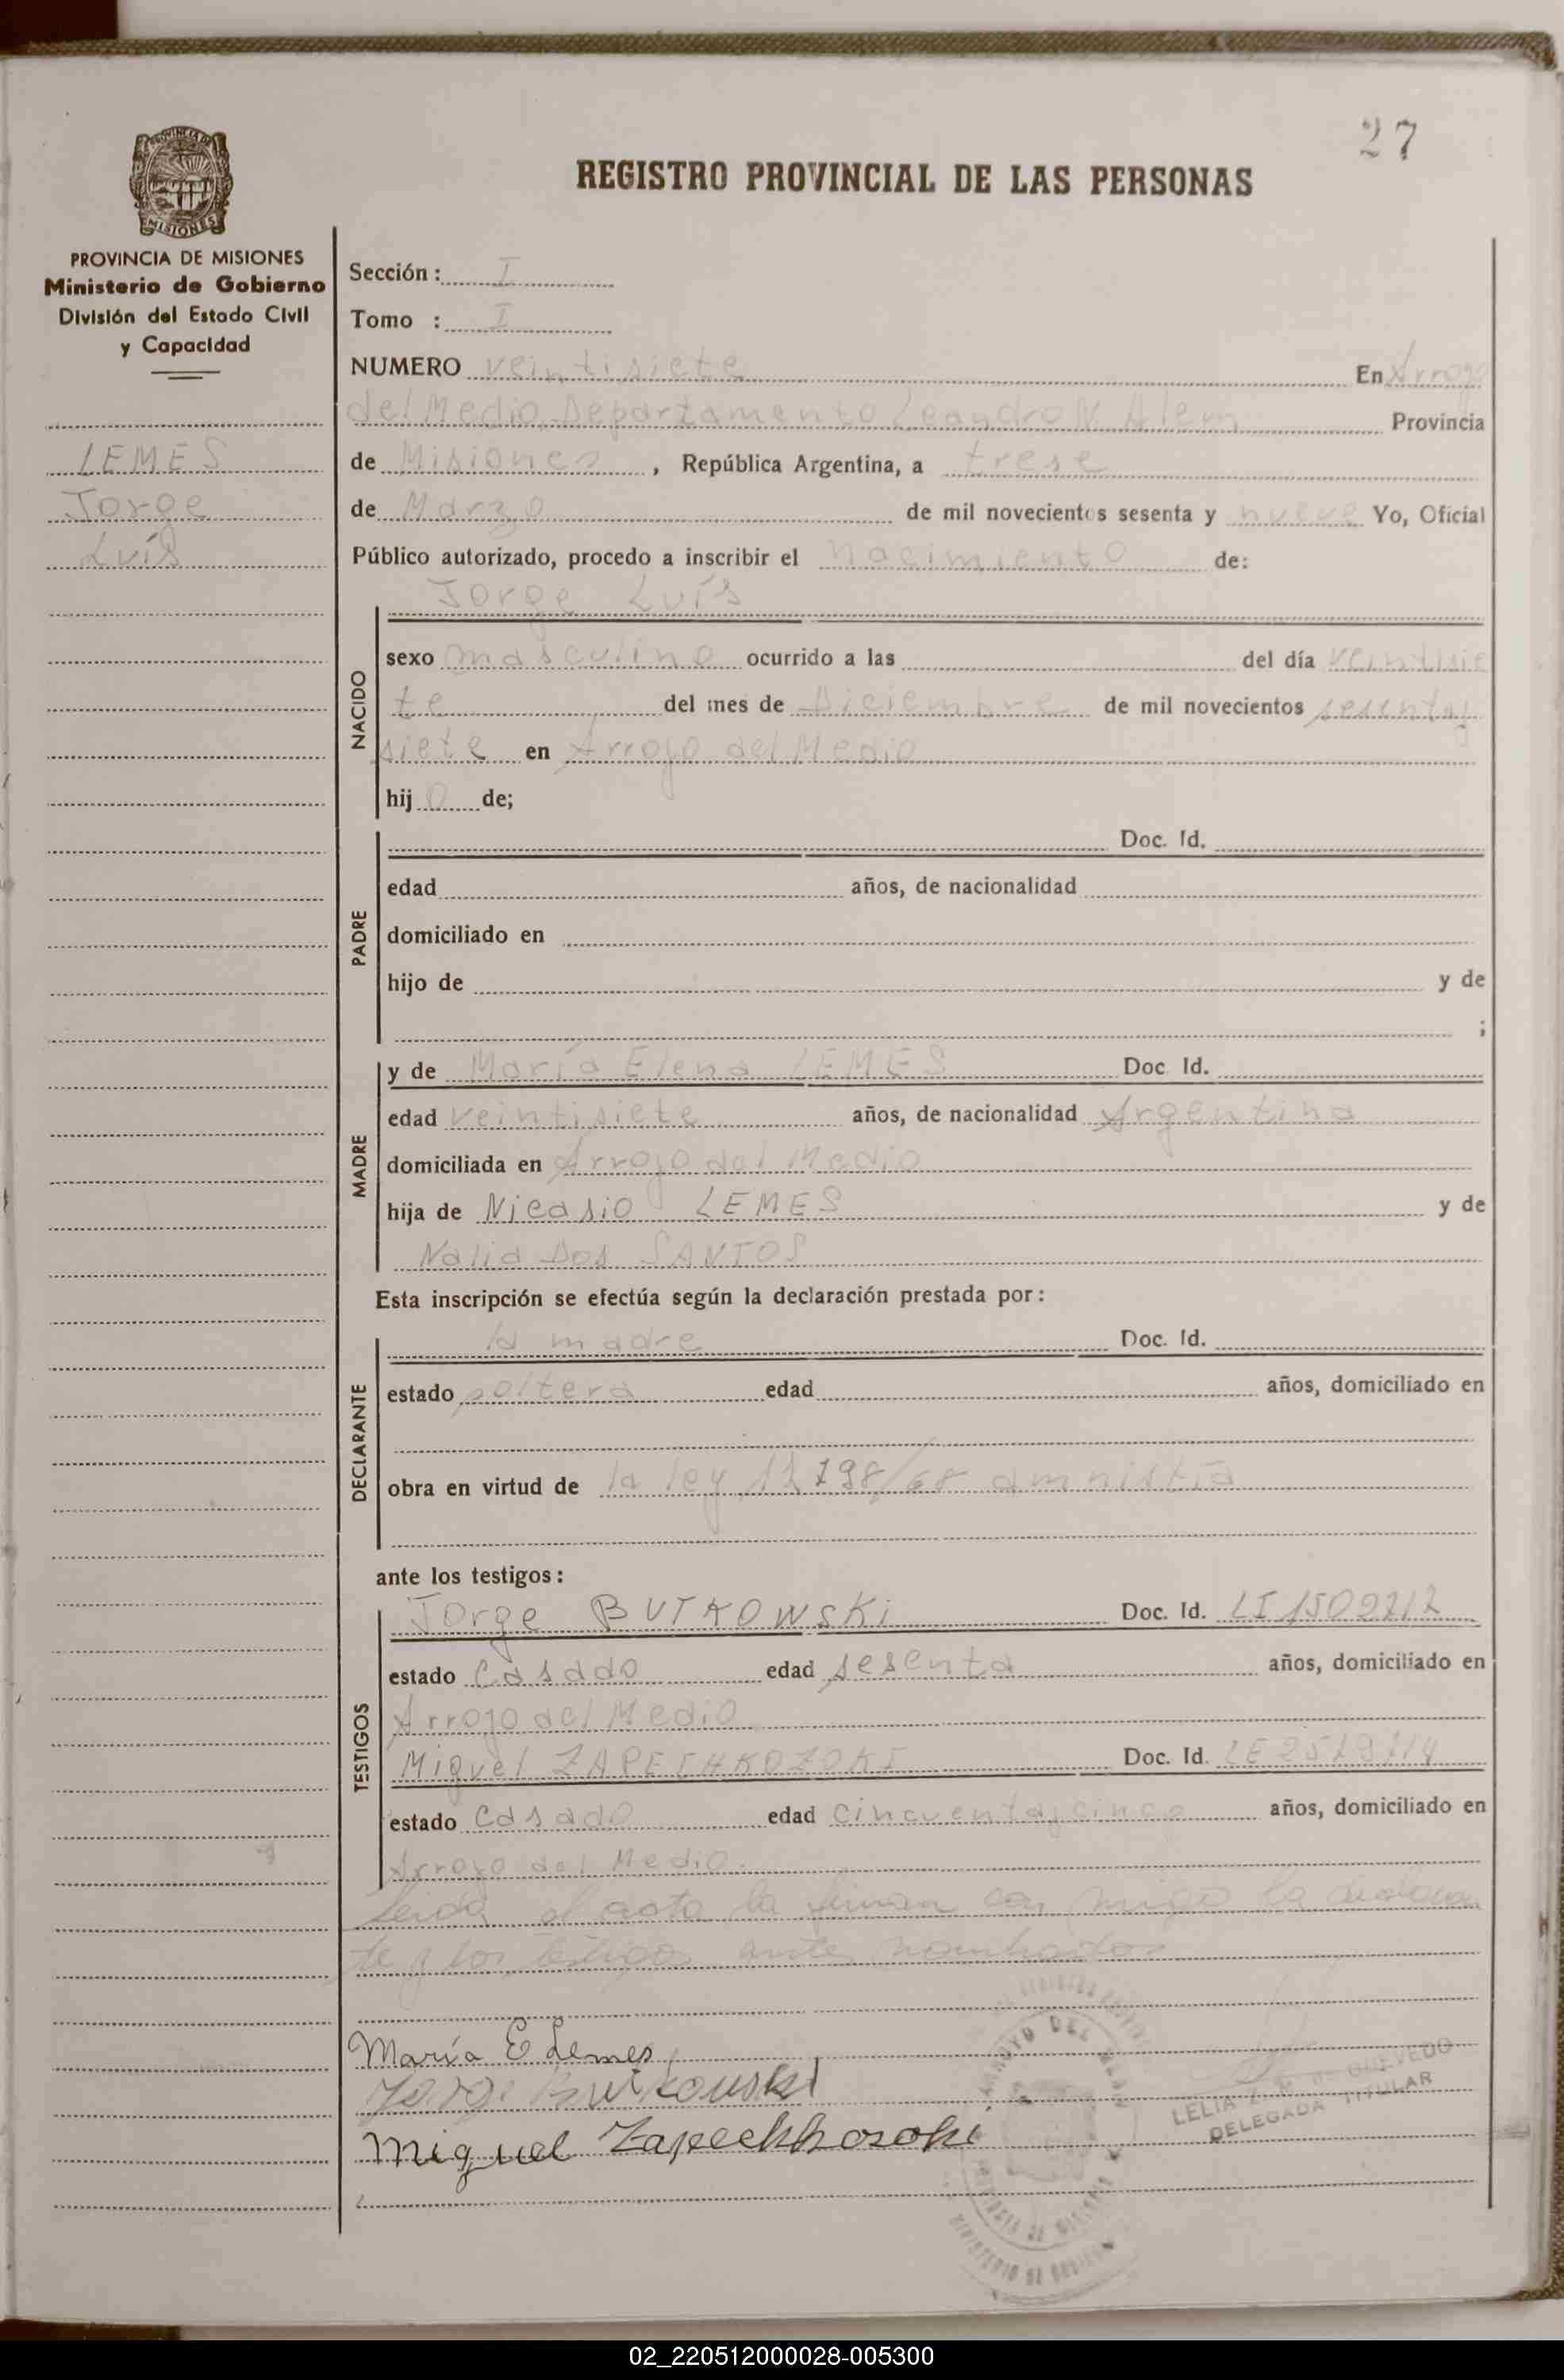 27
REGISTRO PROVINCIAL DE LAS PERSONAS
PROVINCIA DE MISIONES
Ministerio de Gobierno
División del Estado Civil
y Capacidad
LEMES
Jorge
Luís
Sección: I
Tomo : I
NUMERO veintisiete En Arroyo
del Medio, Departamento Leandro N. Alem Provincia
de Misiones, República Argentina, a trese
de Marzo de mil novecientos sesenta y nueve Yo, Oficial
Público autorizado, procedo a inscribir el nacimiento de:
Jorge Luís
NACIDO
sexo masculino ocurrido a las del día veintisie
te del mes de Diciembre de mil novecientos sesentay
siete en Arroyo del Medio
hijo de;
PADRE
Doc. Id.
edad años, de nacionalidad
domiciliado en
hijo de y de
;
MADRE
y de María Elena LEMES Doc Id.
edad veintisiete años, de nacionalidad Argentina
domiciliada en Arroyo del Medio
hija de Nicasio LEMES y de
Nalia Dos SANTOS
Esta inscripción se efectúa según la declaración prestada por:
DECLARANTE
la madre Doc. Id.
estado soltera edad años, domiciliado en
obra en virtud de la ley /68 amnistía
ante los testigos:
TESTIGOS
Jorge BUTKOWSKi Doc. Id. LI
estado Casado edad sesenta años, domiciliado en
Arroyo del Medio
Miguel Doc. Id. LE
estado Casado edad cincuentaycinco años, domiciliado en
Arroyo del Medio.
Leida el acta la firman con migo la declaran
te y los testigos ante nombrados
María E Lemes
Jorge Butkouski
Miguel Zapeckhosoki
ARROYO DEL MEDIO
PROVINCIA DE MISIONES
MINISTERIO DE GOBIERNO
LELIA QUEVEDO
DELEGADA TITULAR
02_220512000028-005300